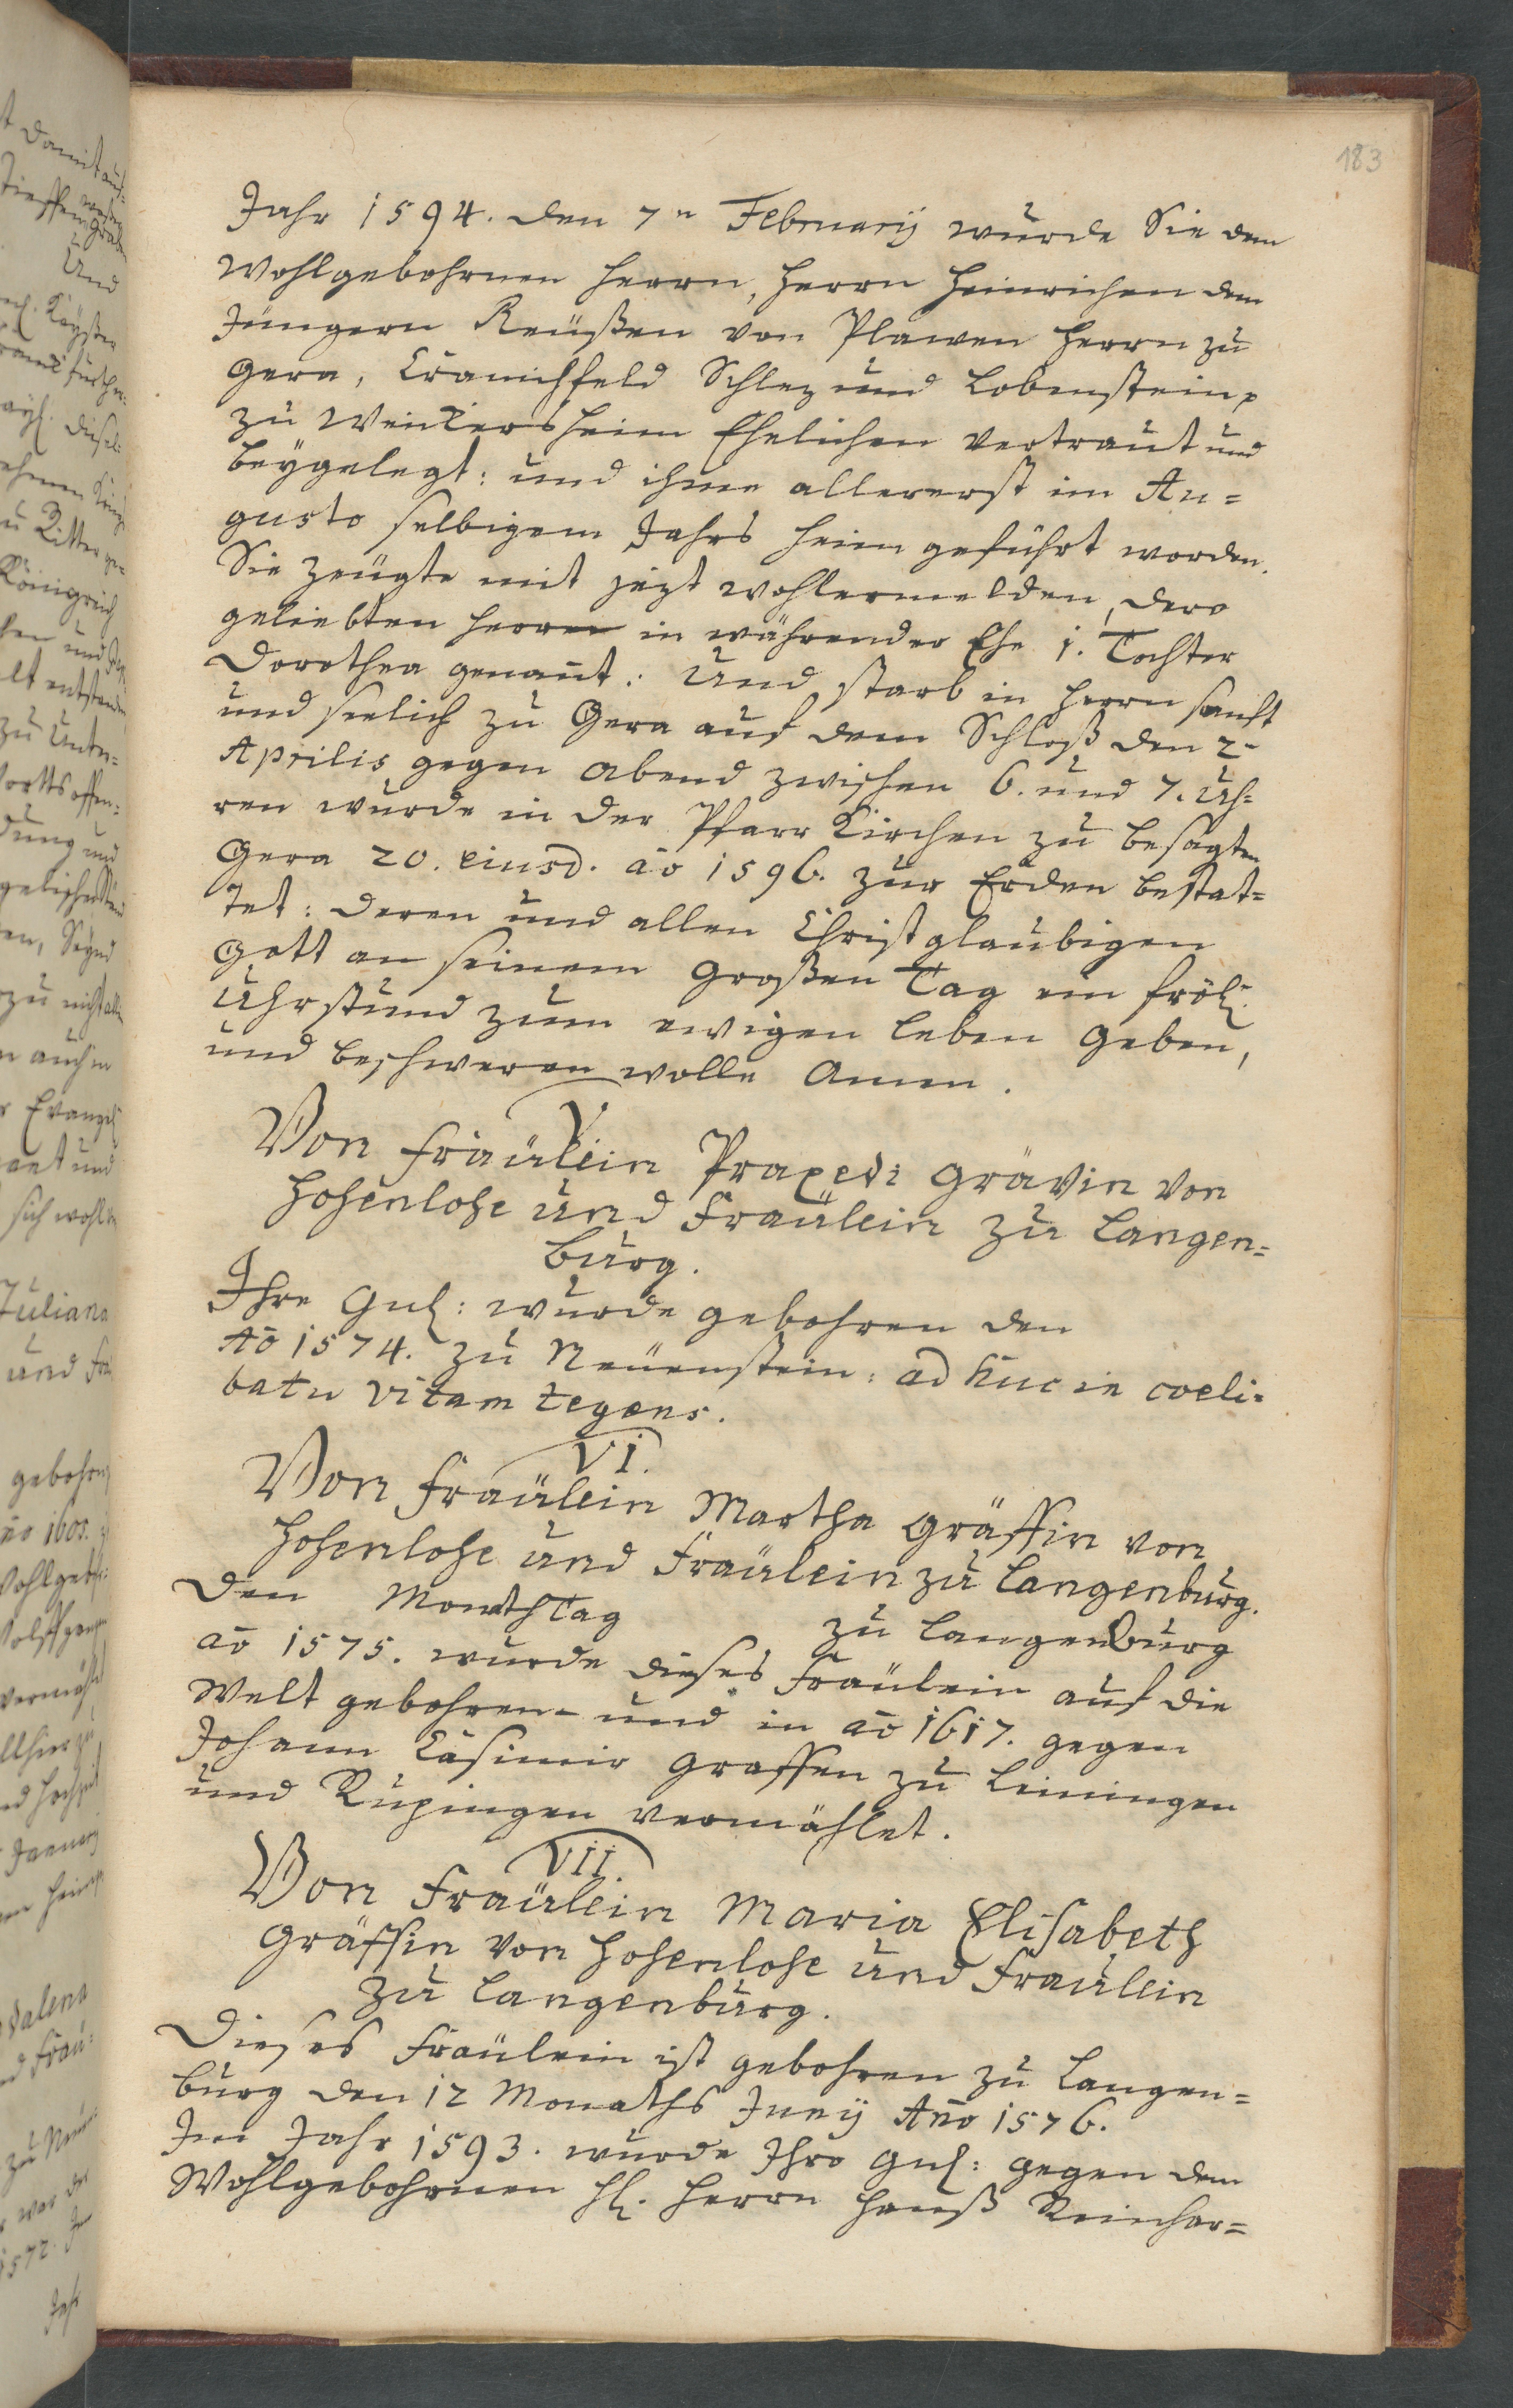 183
Jahr 1594. den 7n February wurde Sie dem
Wohlgebohrnen Herrn, Herrn Heinrichen dem
Jüngern Reüßen von Plawen Herrn zu
Gera, Cranichfeld Schlez und Lobenstein
zu Weickersheim Ehelichen vertraut und
beygelegt: und ihme allererst im Au=
gusto selbigem Jahrs heim geführt worden.
Sie zeugte mit jezt wohlermelden, dero
geliebten Herrn in währender Ehe 1. Tochter
Dorothea genant: Und starb in Herrn sanft
und seelich zu Gera auf dem Schloß den 2-
Aprilis gegen abend zwischen 6. und 7. Uh=
ren wurde in der Pfarr Kirchen zu besagten
Gera 20. eiusd. ao 1596. zur Erden bestat=
tet: deren und allen Christglaubigen
Gott an seinem großen Tag ein fröl:
Uhrstund zum ewigen leben geben,
und beschweren wolle Amen.
V.
Von Fräülein Praxedi Grävin von
Hohenlohe und Fraülein zu Langen=
burg.
Ihre Gnl: wurde gebohren den
Ao 1574. zu Neüenstein: ad huc in coeli=
batu vitam tegens.
VI.
Von Fraülein Martha Gräffin von
Hohenlohe und Fraülein zu Langenburg.
Den Monthstag zu Langenburg
ao 1575. wurde dieses Fraülein auf die
Welt gebohren und in ao 1617. gegen
Johann Casimir Graffen zu Leiningen
und Rüxingen vermählet.
VII.
Von Fraülein Maria Elisabeth
Gräffin von Hohenlohe und Fraülein
zu Langenburg.
Dieses Fraülein ist gebohren zu Langen=
burg den 12 Monaths Juny Ano 1576.
Im Jahr 1593. wurde Ihro Gnl: gegen dem
Wohlgebohrnen H. Herrn Hanß Reinhar=